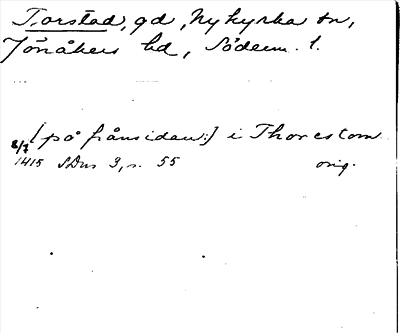 Torstad, gd, Nykyrka sn,
Jönåkers hd, Söderm. l.
[på frånsidan:] i Thorestom
8/7 1415 SDns 3, s. 55 orig.